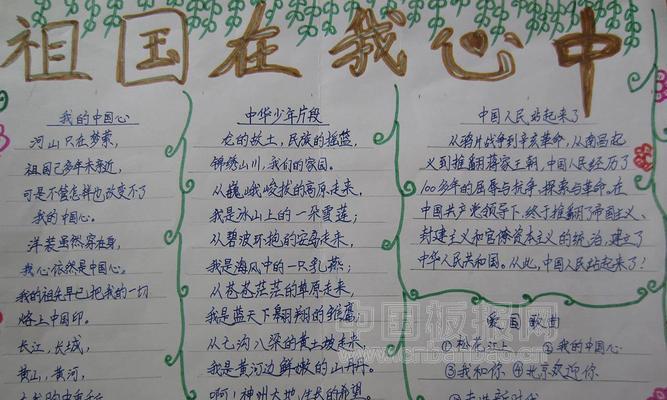 祖国在我心中
我的中国心
河山只在梦萦,
祖国已多年未亲近,
可是不管怎样也改变不了
我的中国心。
洋装虽然穿在身,
我心依然是中国心。
我的祖先早已把我的一切
烙上中国印。
长江,长城,
黄山,黄河,
中华少年片段
龙的故土,民族的摇篮,
锦绣山川,我们的家园。
从巍峨峻拔的高原走来,
我是冰山上的一朵雪莲;
从碧波环抱的宝岛走来,
我是海风中的一只乳燕;
从苍苍茫茫的草原走来,
我是蓝天下翱翔的雏鹰;
从七沟八梁的黄土坡走来,
我是黄河边鲜嫩的山丹丹。
啊!神州大地 生长的希望。
中国人民站起来了
从鸦片战争到辛亥革命,从南昌起
义到推翻蒋家王朝,中国人民经历了
100多年的屈辱与抗争、探索与革命。在
中国共产党领导下,终于推翻了帝国主义、
封建主义和官僚资本主义的统治,建立了
中华人民共和国。从此,中国人民站起来了!
爱国歌曲
①松花江上 ②我的中国心
③我和你 ④北京欢迎你
⑤走进新时代
中国板报网
www.cnbanbao.cn